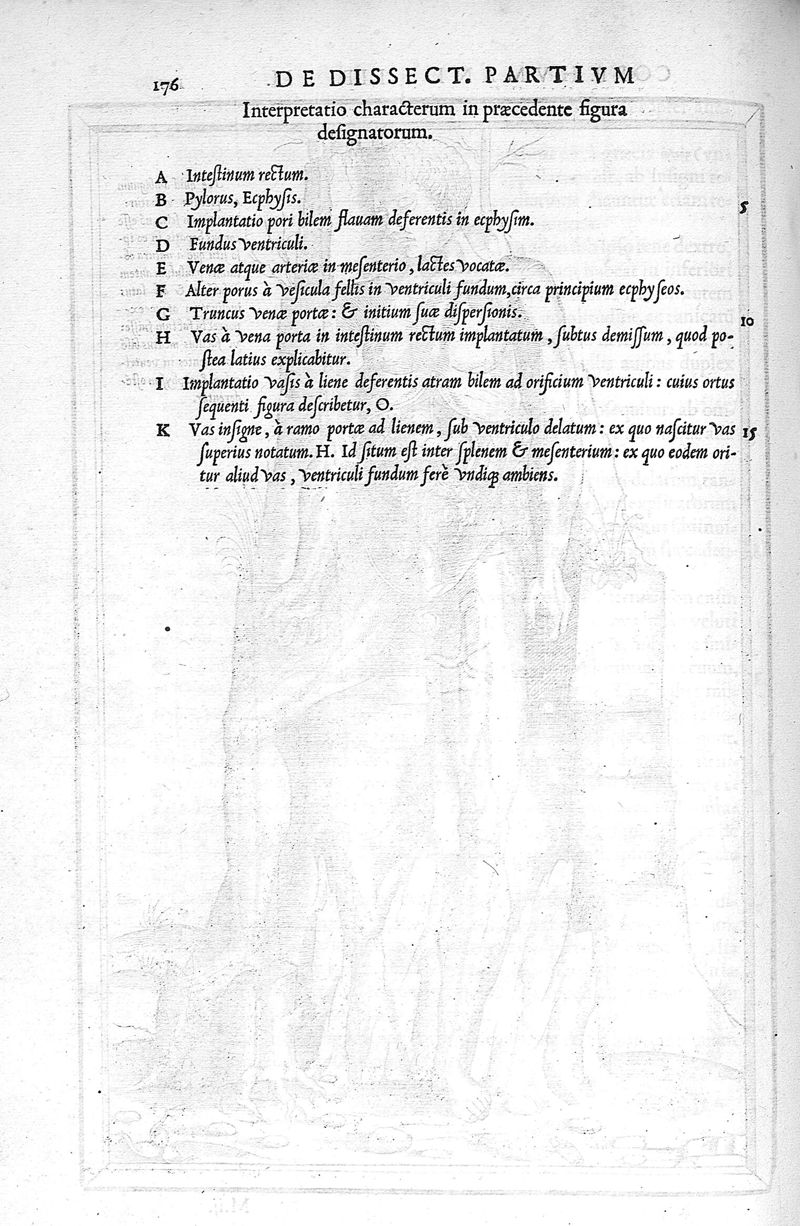 176 DE DISSECT. PARTIVM
Interpretatio characterum in præcedente figura
designatorum.
A Intestinum rectum.
B Pylorus, Ecphysis. 5
C Implantatio pori bilem flauam deferentis in ecphysim.
D Fundus ventriculi.
E Venæ atque arteriæ in mesenterio, lactes vocatæ.
F Alter porus à vesicula fellis in ventriculi fundum, circa principium ecphyseos.
G Truncus venæ portæ: & initium suæ dispersionis. 10
H Vas à vena porta in intestinum rectum implantatum, subtus demissum, quod po-
stea latius explicabitur.
I Implantatio vasis à liene deferentis atram bilem ad orificium ventriculi: cuius ortus
sequenti figura describetur, O.
K Vas insigne, à ramo portæ ad lienem, sub ventriculo delatum: ex quo nascitur vas 15
superius notatum. H. Id situm est inter splenem & mesenterium: ex quo eodem ori-
tur aliud vas, ventriculi fundum ferè vndiq; ambiens.